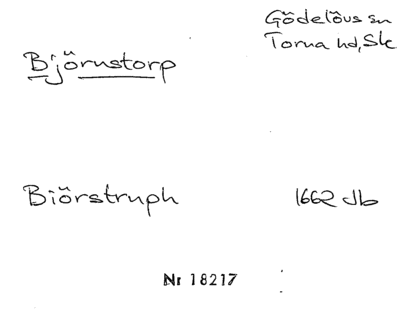 Gödelövs sn
Torna hd, Sk
Björnstorp
Biörstruph
1662 Jb
Nr 18217